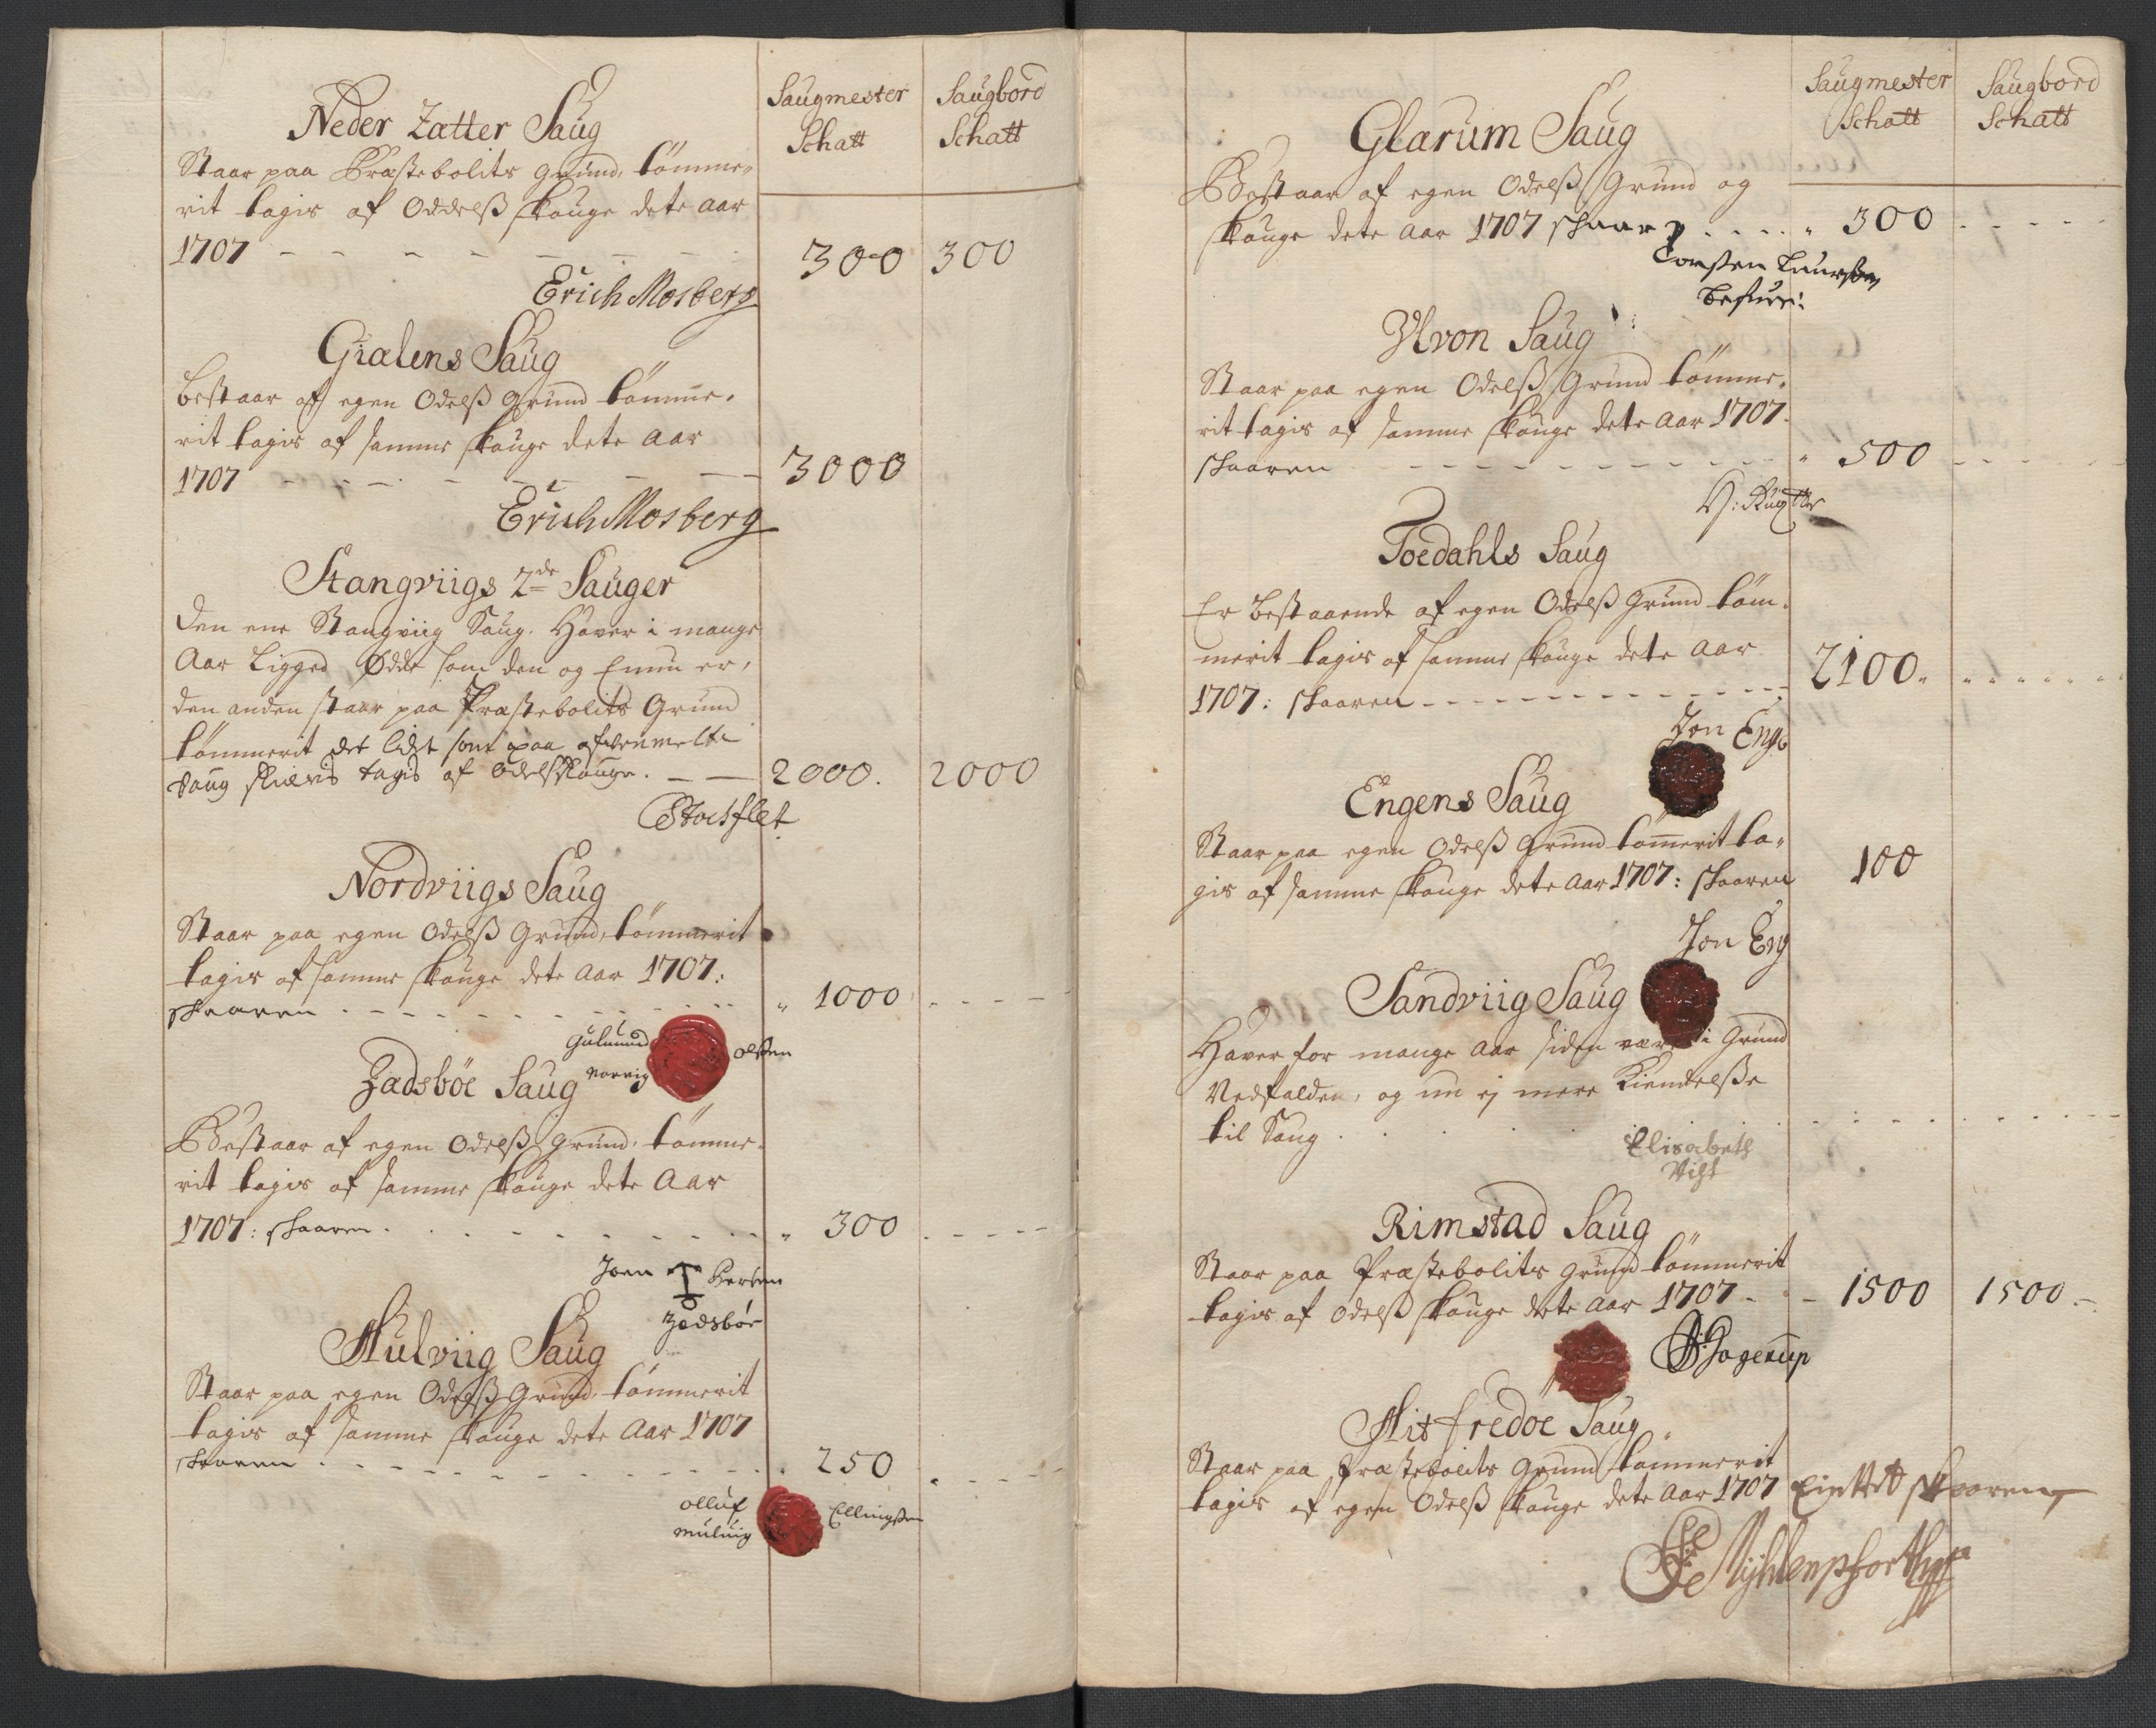 Saugmester Schatt
Saugbord Schatt
Neder Zætter Saug
Staar paa Præstebolits grund, tømme-
rit tagis af Oddelß skouge dete aar
1707 - - - - - - - 300 300
Erich Mosberg
Gialens Saug
bestaar af egen Odelß grund tømme-
rit tagis af samme skouge dete aar
1707 - - - - - 3000
Erich Mosberg
Stangviigs 2de Sauger
Den ene Stangviig Saug. Haver i mange
Aar Ligged Ødde som den og Ennu er,
den anden staar paa Præstebolits Grund
tømmerit det lidt som paa
Saug skieris tagis af odelsskouge. - - 2000. 2000
Stockflet
Nordviigs Saug
Staar paa egen Odelß Grund, tømmerit
tagis af samme skouge dete aar 1707:
skaaren - - - - - 1000 - - - -
Gulmund olßen
Norvig
Zædsbøe Saug
Bestaar af egen Odelß grund, tømme-
rit tagis af samme skouge dete Aar
1707: skaaren - - - - - 300 - - - -
Joen
Zædsbøe
Hulviig Saug
Staar paa egen Odelß Grund, tømmerit
tagis af samme skouge dete Aar 1707
skaaren - - - - - 250 - - - -
olluf Ellingßen
muluig
Saugmester Schatt
Saugbord Schatt
Glarum Saug
Bestaar af egen Odelß Grund og
skouge dete aar 1707 skaar - - - 300 - - - -
Torsten Laurßen
Hvon Saug
Staar paa egen Odelß Grund tømme-
rit tagis af samme skouge dete aar 1707.
skaaren - - - - - 500 - - - -
Toedahls Saug
Er bestaaende af egen Odelß grund tøm-
merit tagis af samme skouge dete aar
1707: skaaren - - - - - 2100. - - - -
Jon Eng
Engens Saug
Staar paa egen Odelß Grund tømmerit ta-
gis af samme skouge dete aar 1707: skaaren 100
Jon Eng
Sandviig Saug
Haver for mange Aar siden været i Grund
Nedfalden, og nu ej mere Kiendelße
til Saug . . . .
Elisabeth
Rimstad Saug
Staar paa Præstebolits grund tømmerit
tagis af Odelß skouge dete Aar 1707 - - 1500 1500 -
Hagerup
Hitfredøe Saug
Staar paa Præstebolits Grund tømmerit
tagis af egen Odelß skouge dete Aar 1707 skaaren
Mühlenphort